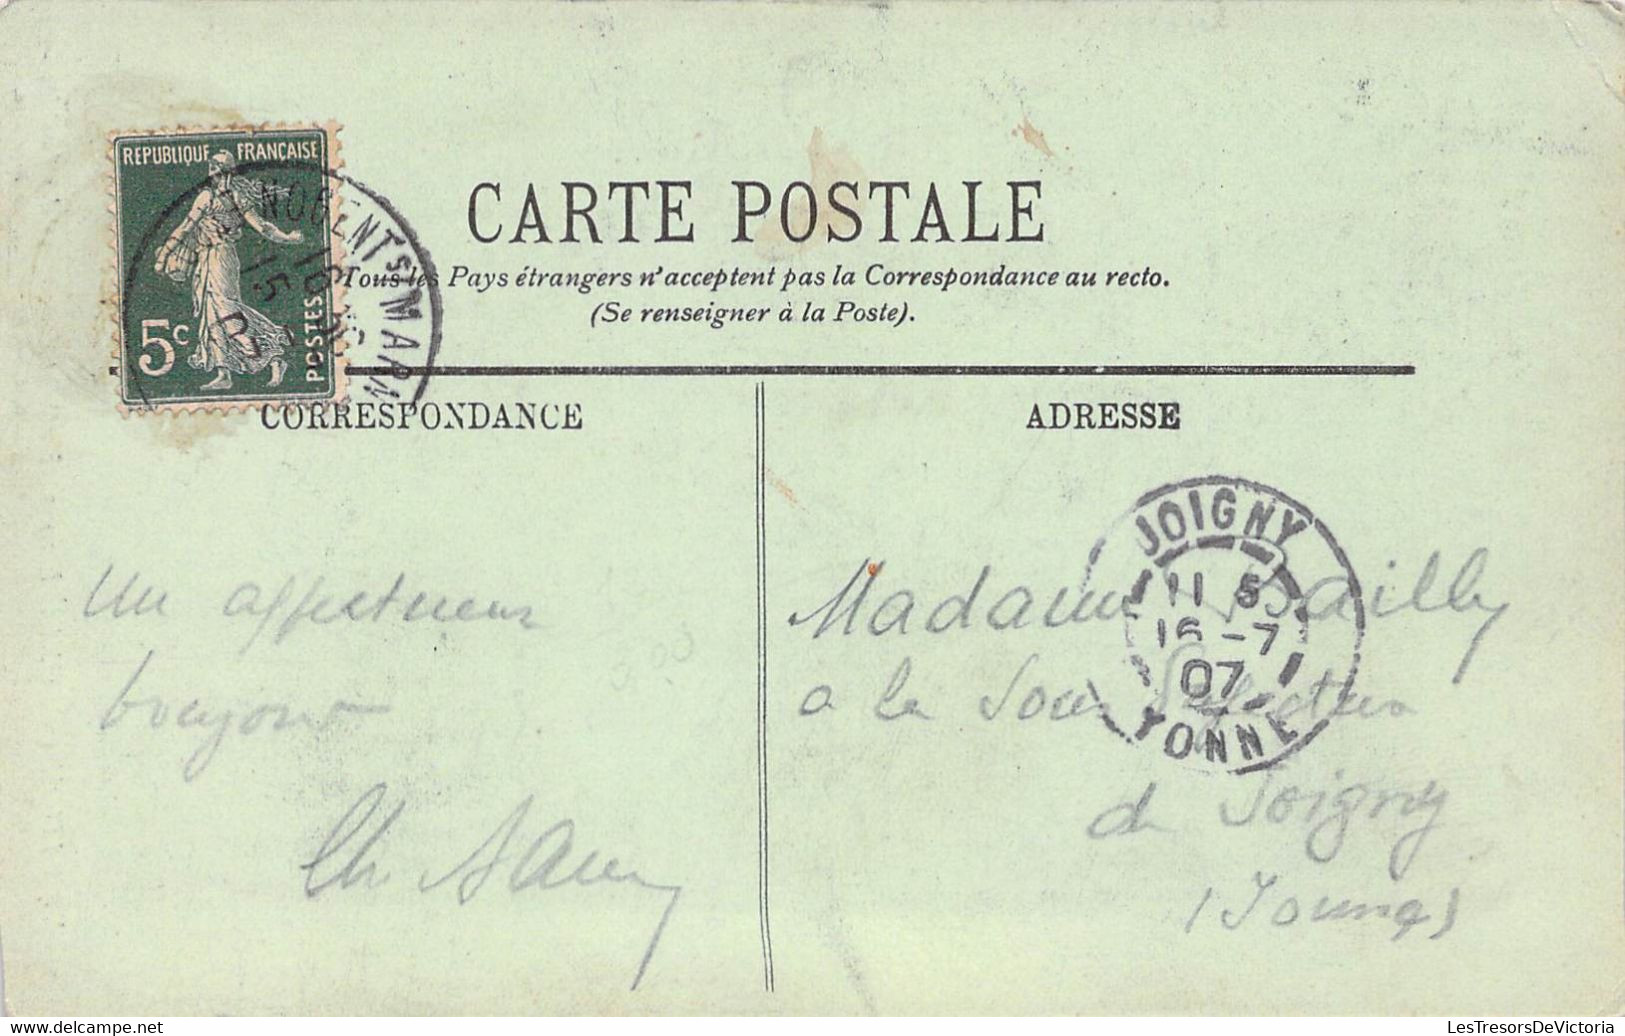 REPUBLIQUE FRANÇAISE
5c
POSTES
NOGENT S MARN
16
15
CARTE POSTALE
Tous les Pays étrangers n'acceptent pas la Correspondance au recto.
(Se renseigner à la Poste).
CORRESPONDANCE
ADRESSE
Un affectueux
bonjour
JOIGNY
11 5
16 -7
07
YONNE
Madame Bailly
a la Sous Préfecture
de Joigny
(Yonne)
LesTresorsDeVictoria